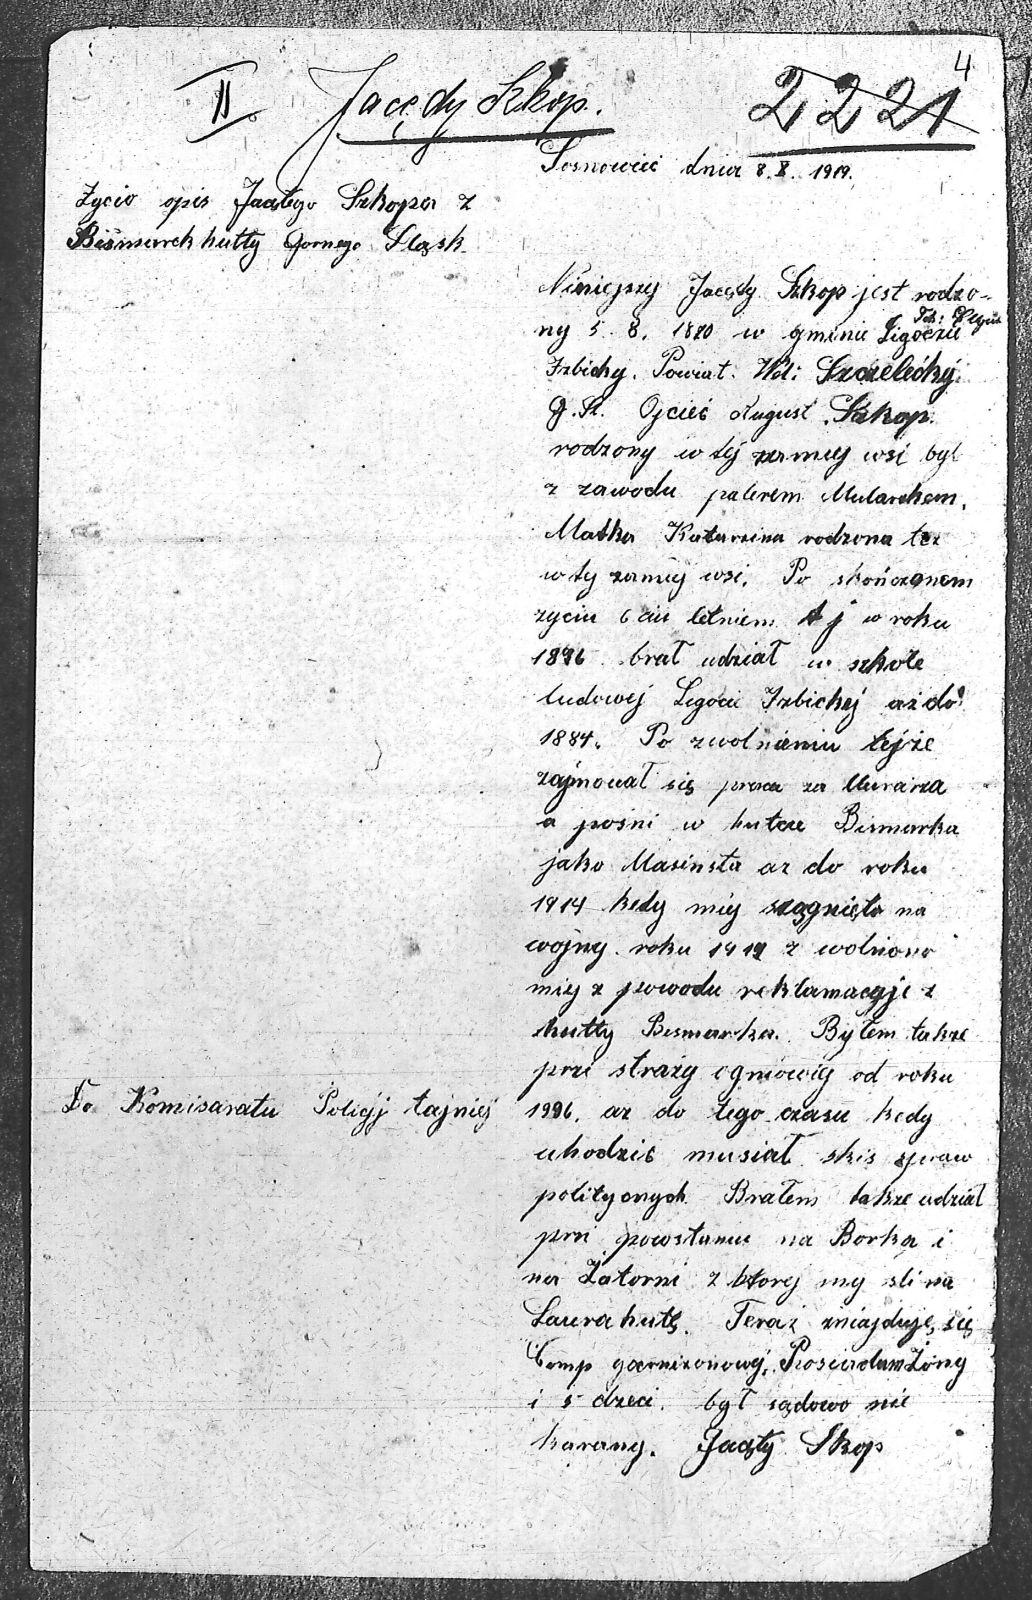 4
II
Jacędy Szkop.
2221
Sosnowiec dnia 8. X. 1919.
Zycio opis Jacętego Szkopa z
Bismarck hutty Gornego Sląsk.
Niniejszy Jacędy Szkop jest rodzo-
ny 5. 8. 1870 w gminie Ligoczie
Izbicky. Powiat. Wel: Szczelecky.
G. Sl. Ojcieć August Szkop.
rodzony w tej samiej wsi był
z zawodu palerem Mularchem.
Matka Katarzina rodzona tez
w ty samiej wsi. Po skończonem
zyciu 6 ciu letniem t j w roku
1876 brał udział w szkole
ludowej Ligoci Izbickej aż do
1884. Po zwolnieniu tejże
zajmował się praca za Murarza
a pośni w hutcze Bismarka
jako Masinsta az do roku
1914 kedy miej szągnięto na
wojny. roku 1919 z wolniono
miej z powodu reklamacyji z
hutty Bismarka. Byłem takze
przi straży ogniowiej od roku
1996. az do tego czasu kedy
uhodzić musiał skis spraw
polityonych. Brałem takze udział
przi powstaniu na Borka i
na Zatorni z ktorej my sli na
Laura hutę. Teraz zniajduję się
Comp garnizonowej. Posiadam Żony
i 5 dzeci. był sądowo nie
karany. Jacęty Skop
Do Komisaratu Policyj tajniej